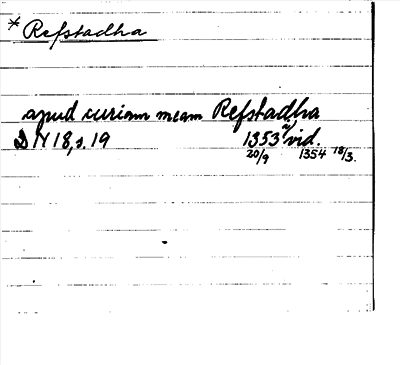 * Refstadha
apud curiam meam Refstadha
DN 18, s. 19 1353 vid.
20/9 1354 18/3.